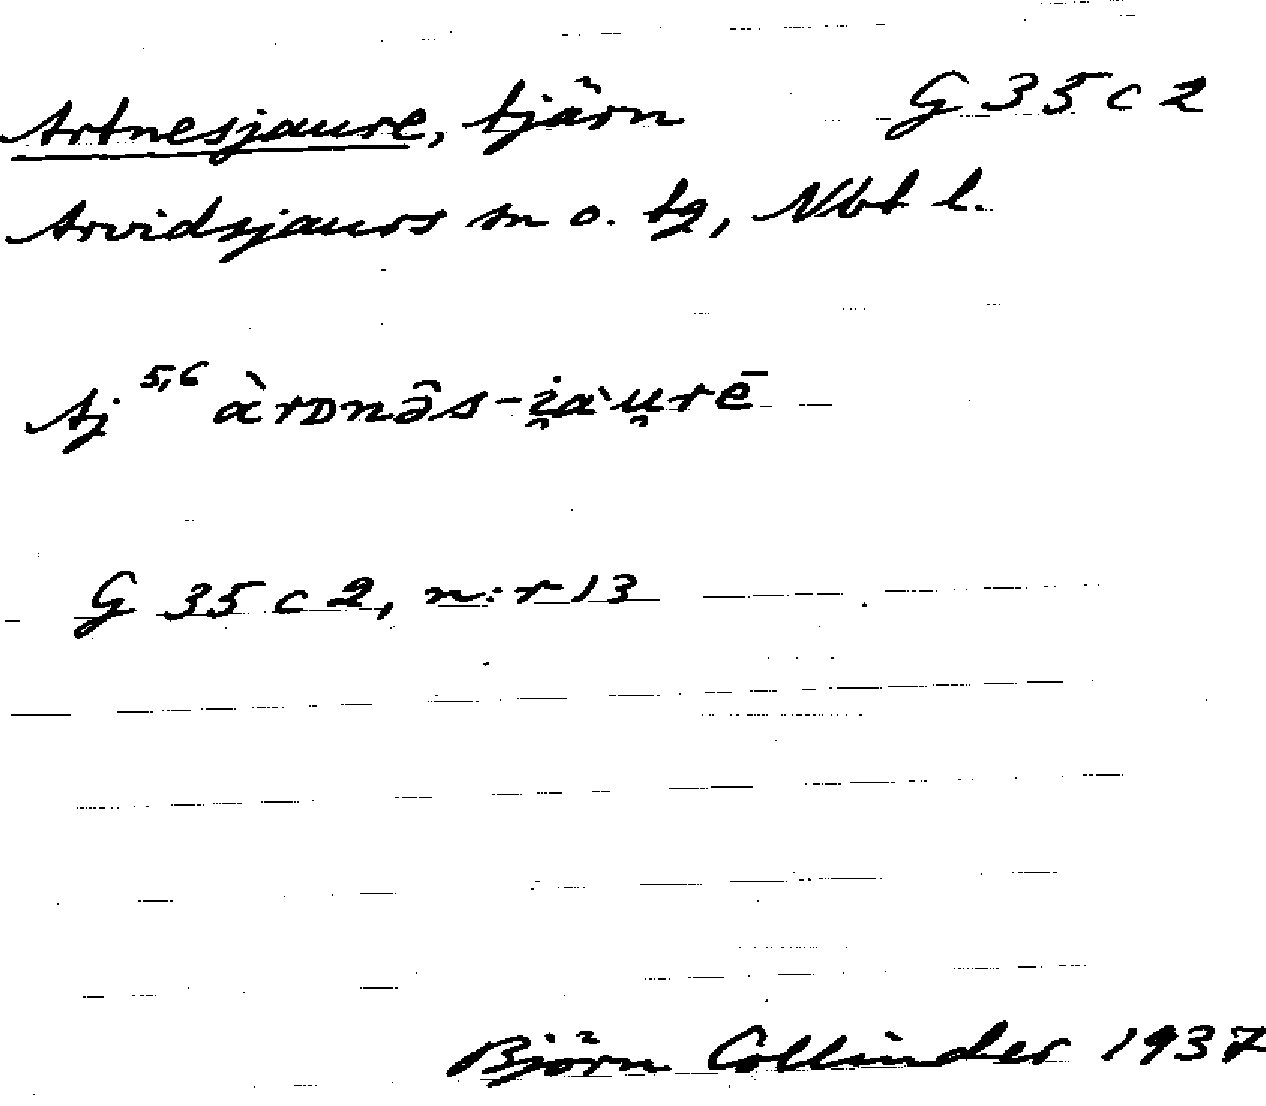 Artnesjaure, tjärn G 35 c 2
Arvidsjaurs sn o. tg, Nbt l.
Aj 5,6 àrᴅnə̂s-i̯àu̯rē
G 35 c 2, n:r 13
Björn Collinder 1937